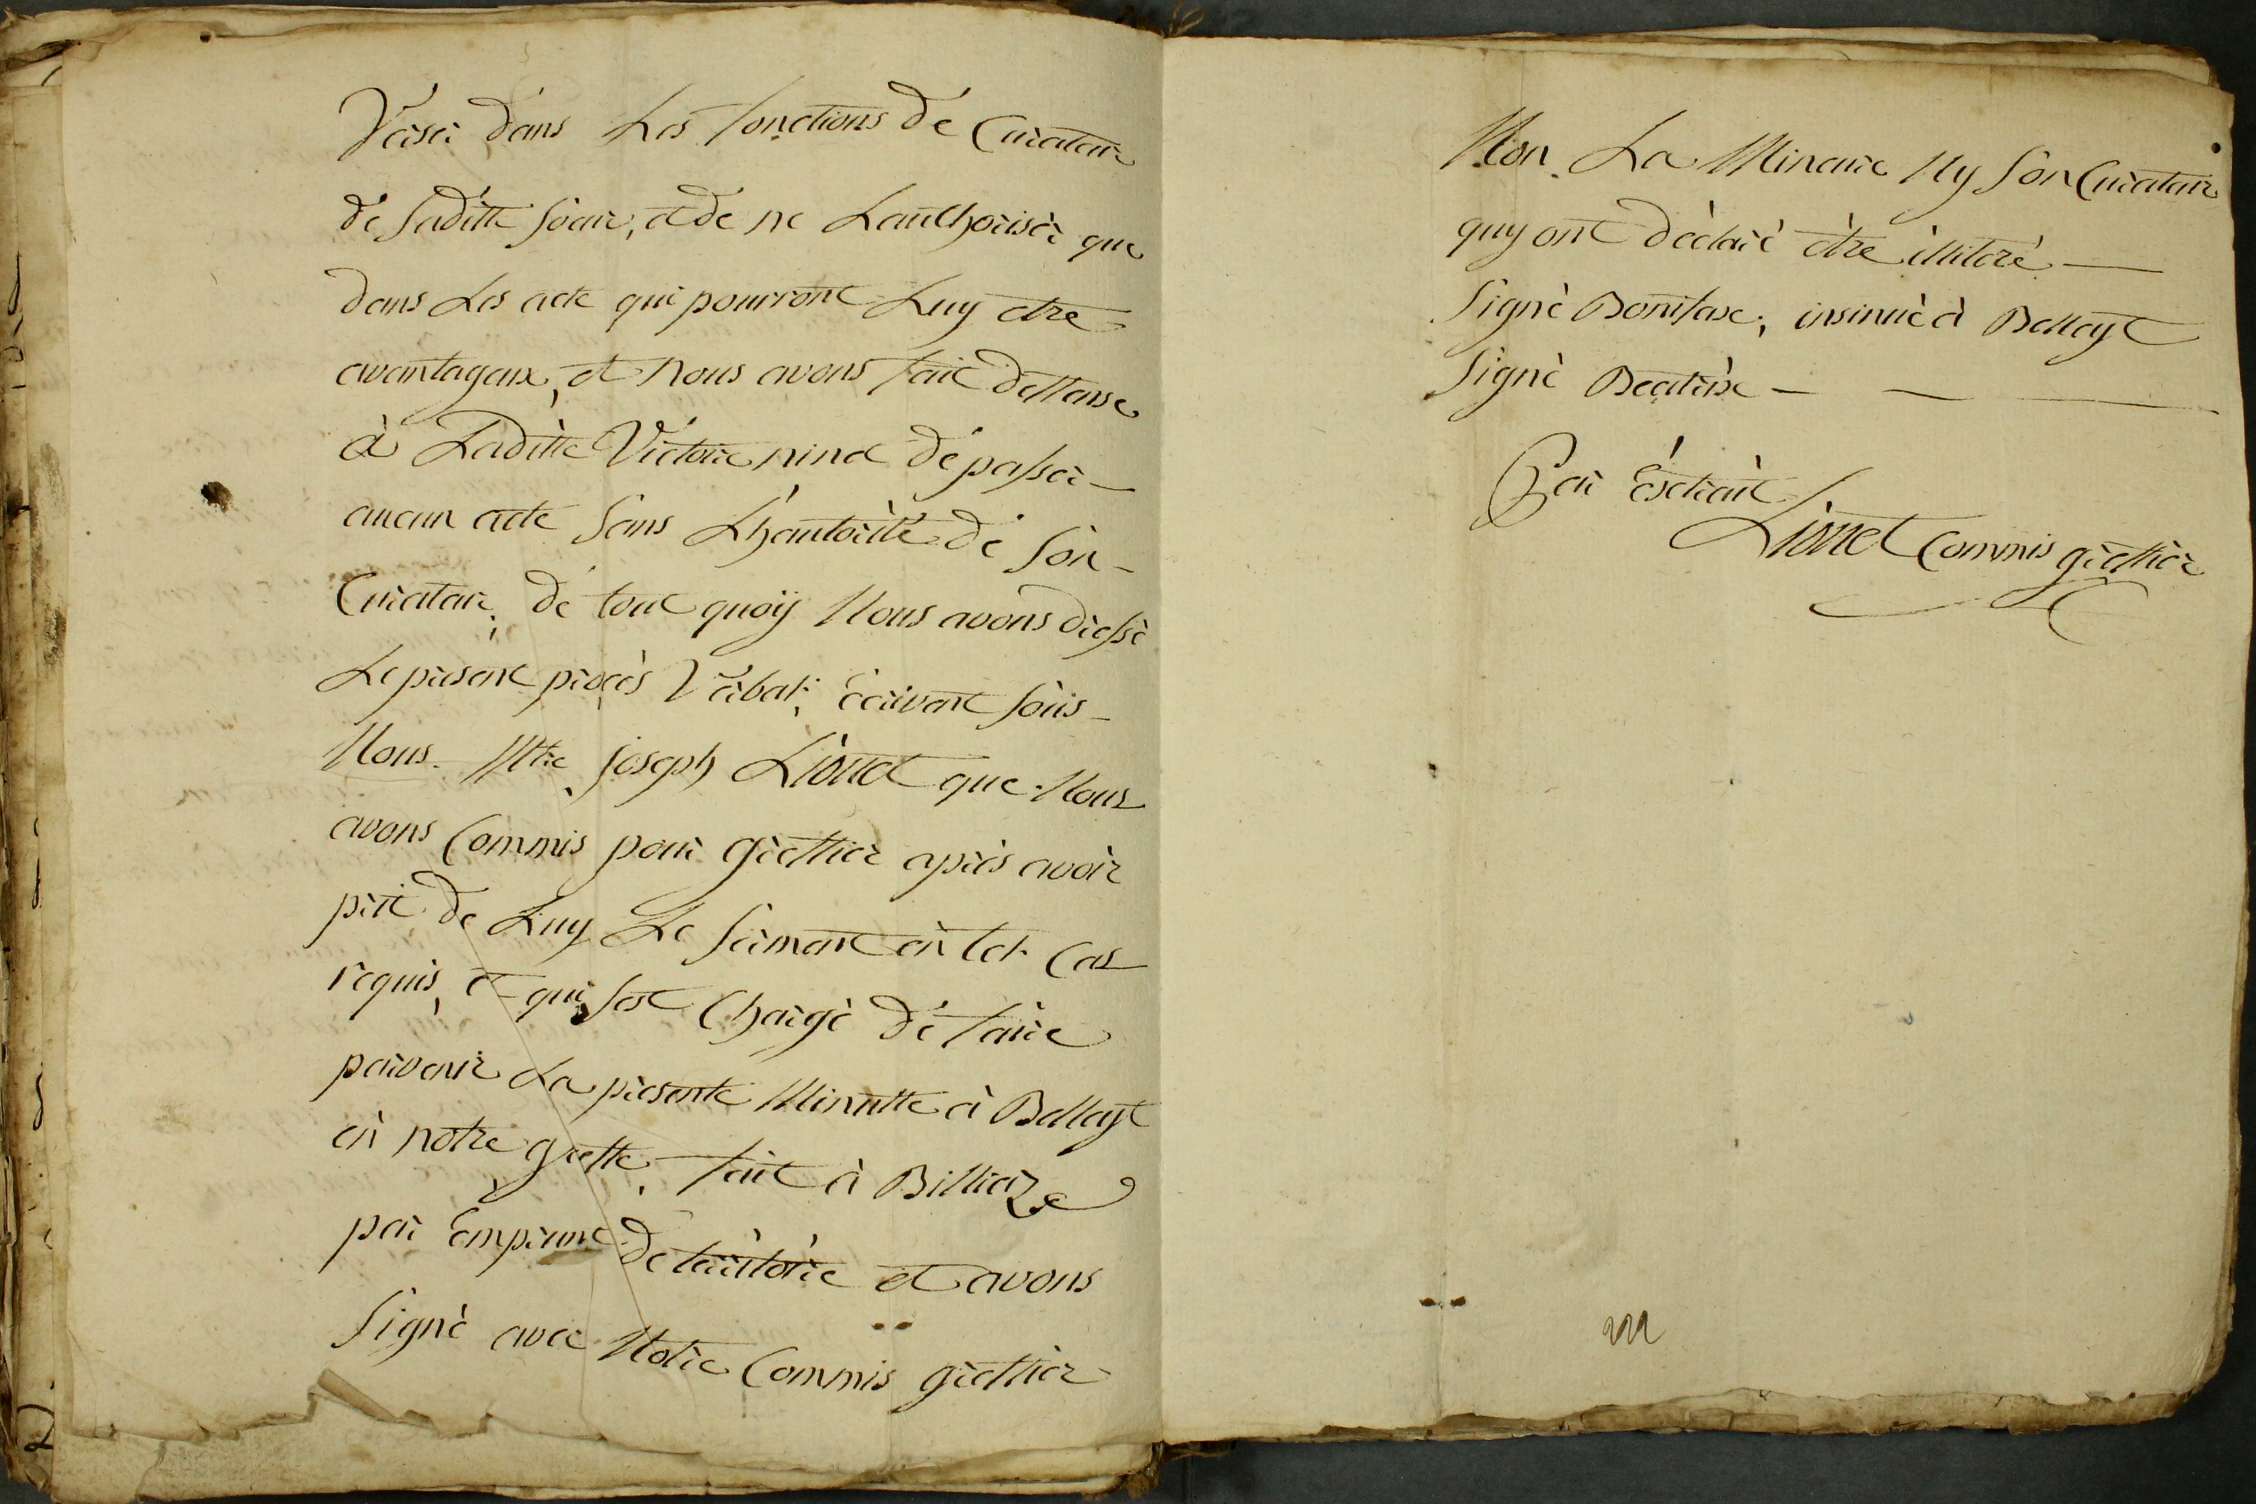 Verser dans Les fonctions de Curateur
de saditte sœur, et de ne Lauthoriser que
dans Les acte qui pourront Luy etre
avantageux, et Nous avons fait deffense
à Laditte Victoire nina de passer
aucun acte sans Lhautorité de son
Curateur; de tout quoÿ Nous avons dressé
Le present procès Verbal; Ecrivant sous
Nous Mtre joseph Lionet que Nous
avons Commis pour greffier après avoir
prit de Luy Le serment en tel Cas
requis, et qui sest Chargé de faire
parvenir La presente Minutte à Belley
en notre greffe, fait à Billiaz
par Emprunt de territoire et avons
signé avec Notre Commis greffier
Non La Mineure Ny son Curateur
quy ont declaré être illiteré
signé Bonifax; insinué à Belley
signé Beatrix
Par Extrait
Lionet Commis greffier